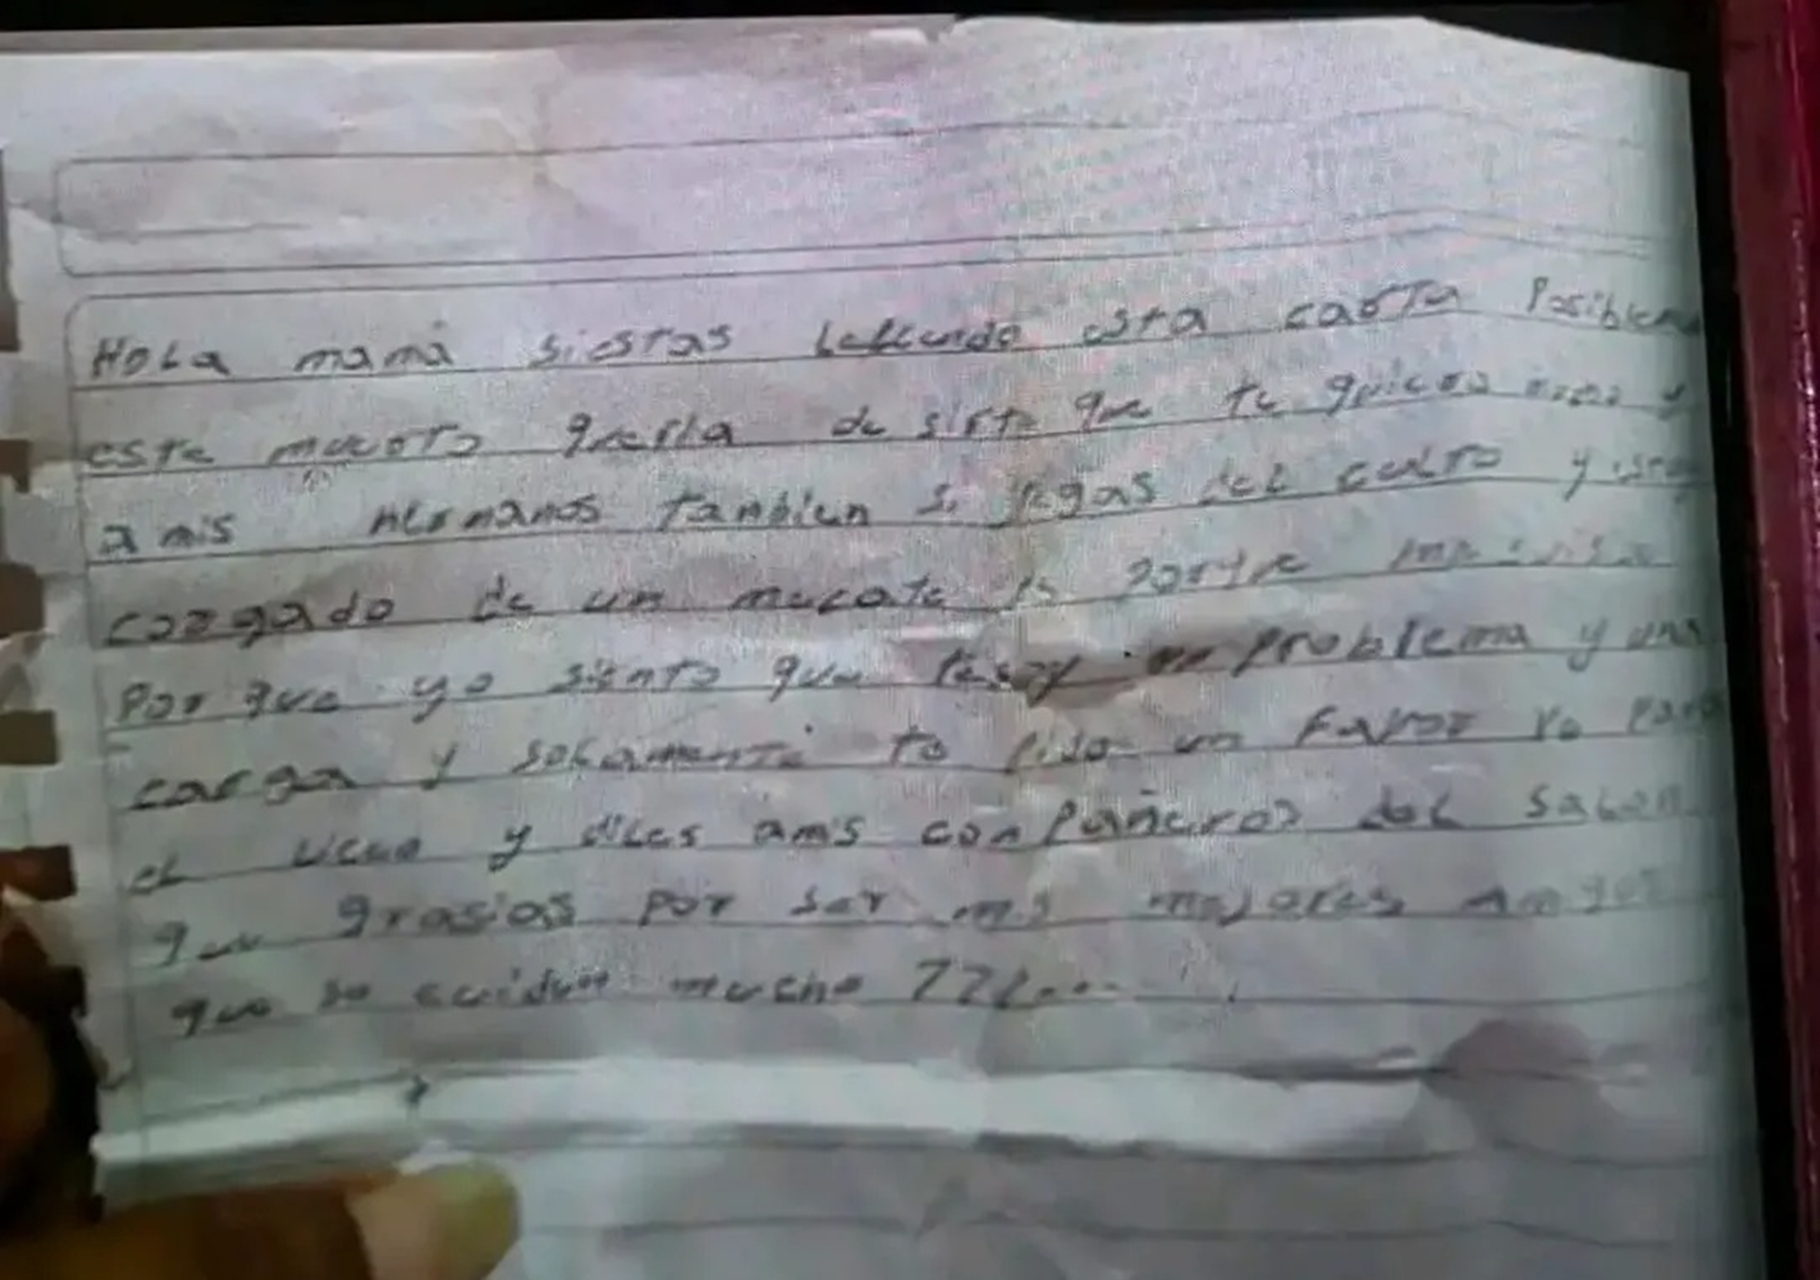 Hola mamá si estas lellendo esta carta Posiblem
este muerto queria de sirte que te quiero muo y
a mis hermanos tanbien si llegas del culto y estoy
corgado de un mecate es porque
Por que yo siento que soy un problema y una
carga y solamente te pido un Favor Ve Para
el liceo y diles a mis conpañeros del salon
que grasias por ser mis mejores amigos
que se cuiden mucho